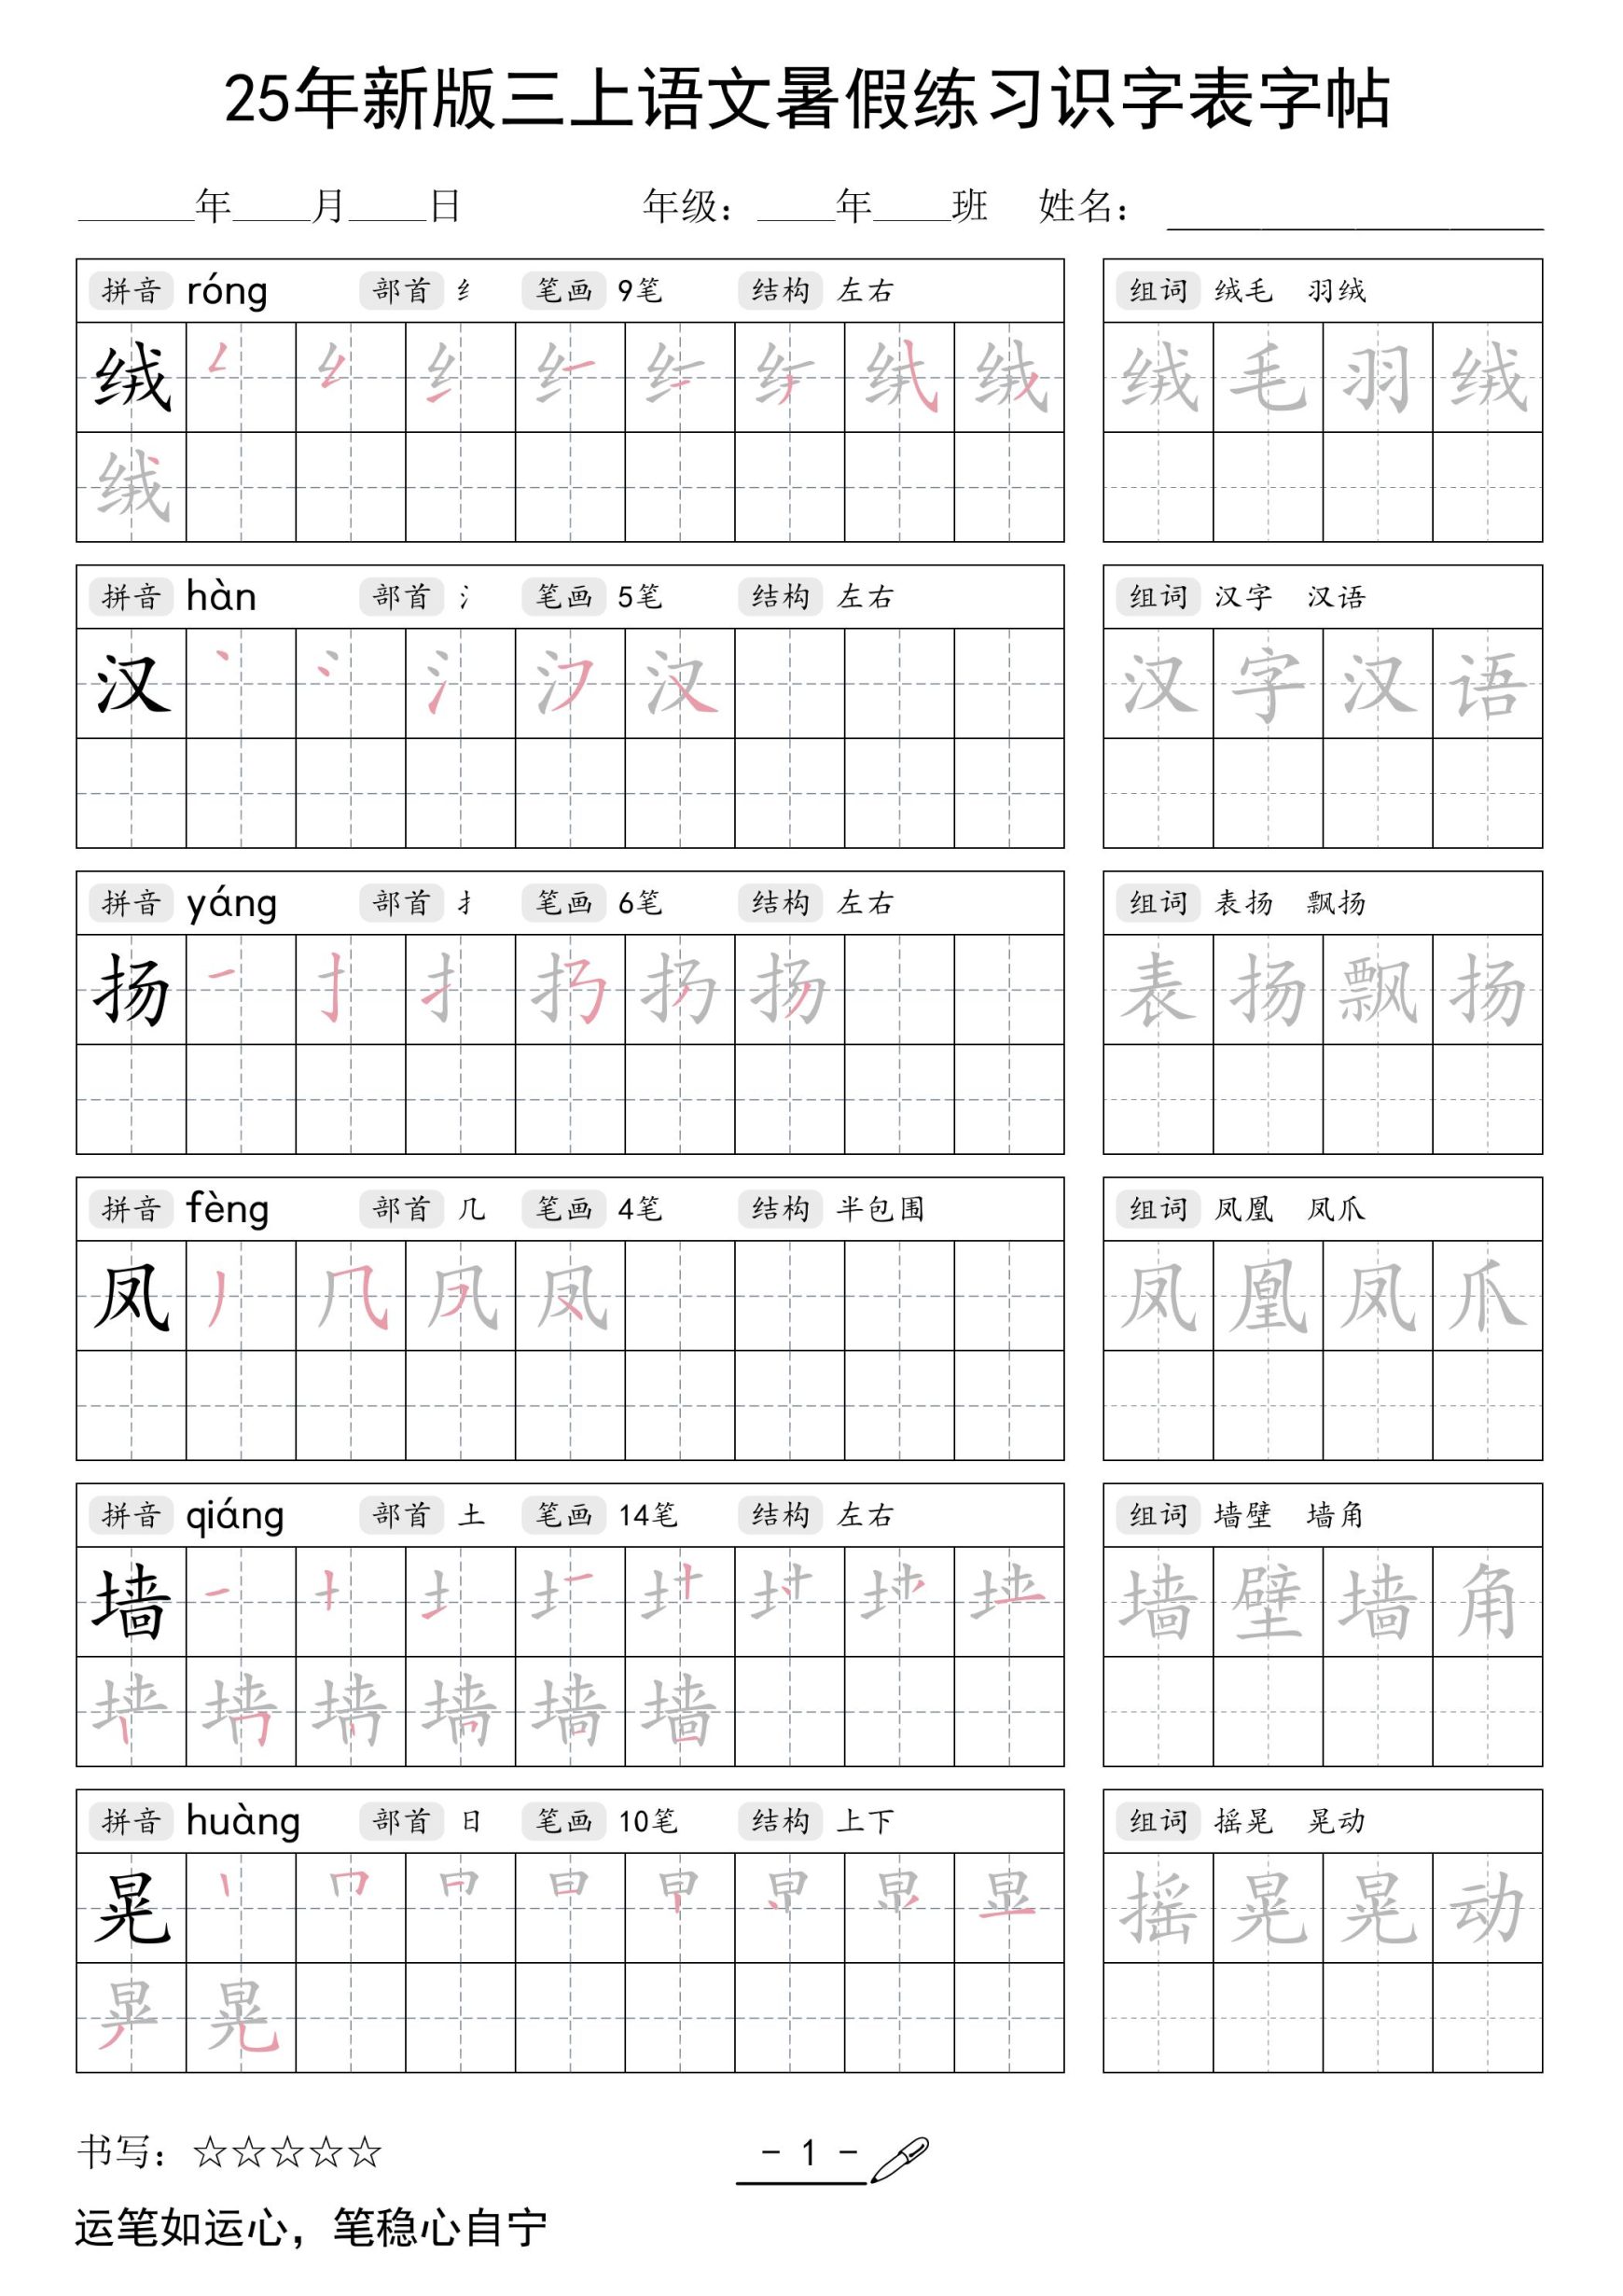 25年新版三上语文暑假练习识字表字帖
______年____月____日 年级：____年____班 姓名：
拼音 róng 部首 纟 笔画 9笔 结构 左右 组词 绒毛 羽绒
绒 绒 毛 羽 绒
绒
拼音 hàn 部首 氵 笔画 5笔 结构 左右 组词 汉字 汉语
汉 汉 汉 字 汉 语
拼音 yáng 部首 扌 笔画 6笔 结构 左右 组词 表扬 飘扬
扬 扬 表 扬 飘 扬
拼音 fèng 部首 几 笔画 4笔 结构 半包围 组词 凤凰 凤爪
凤 凤 凤 凰 凤 爪
拼音 qiáng 部首 土 笔画 14笔 结构 左右 组词 墙壁 墙角
墙 墙 壁 墙 角
墙
拼音 huàng 部首 日 笔画 10笔 结构 上下 组词 摇晃 晃动
晃 摇 晃 晃 动
晃
书写：☆☆☆☆☆ - 1 -
运笔如运心，笔稳心自宁